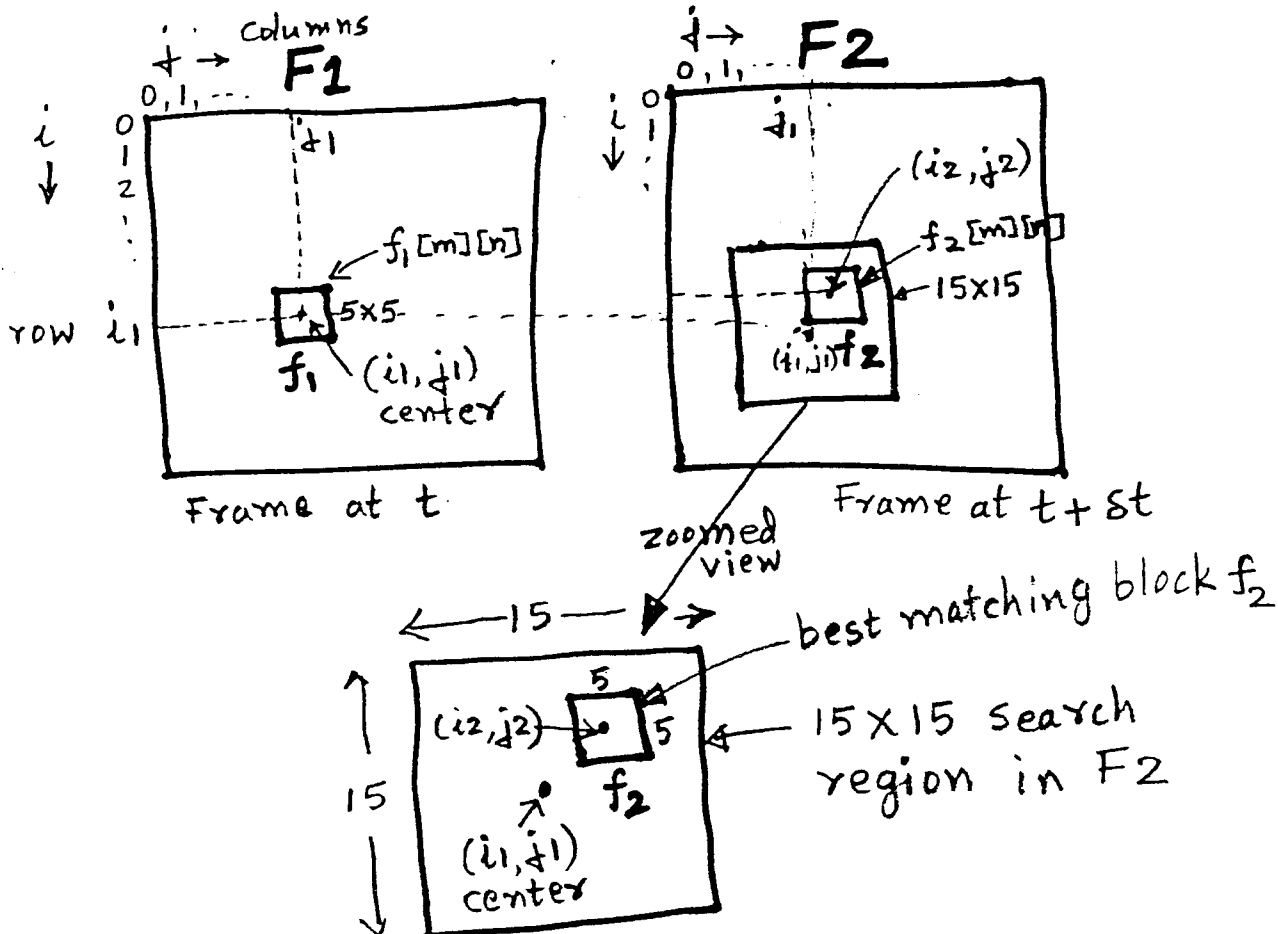 columns
j → F1
0, 1, ....
i
↓
0
1
2
.
.
j1
f1[m][n]
5x5
row i1
f1
(i1, j1)
center
Frame at t
j → F2
0, 1, ....
i
↓
0
1
.
.
j1
(i2, j2)
f2[m][n]
15x15
(i1, j1) f2
Frame at t + δt
zoomed
view
15
best matching block f2
5
(i2, j2)
5
f2
15x15 search
region in F2
15
(i1, j1)
center